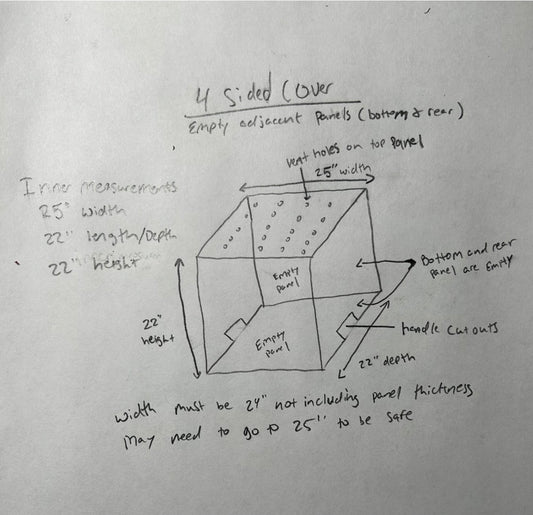 4 Sided Cover
Empty adjacent panels (bottom & rear)
vent holes on top panel
25" width
Inner measurements
25" width
22" length/Depth
22" height
Empty
panel
Bottom and rear
panel are empty
22"
height
Empty
panel
handle cut outs
22" depth
width must be 24" not including panel thickness
May need to go to 25" to be safe